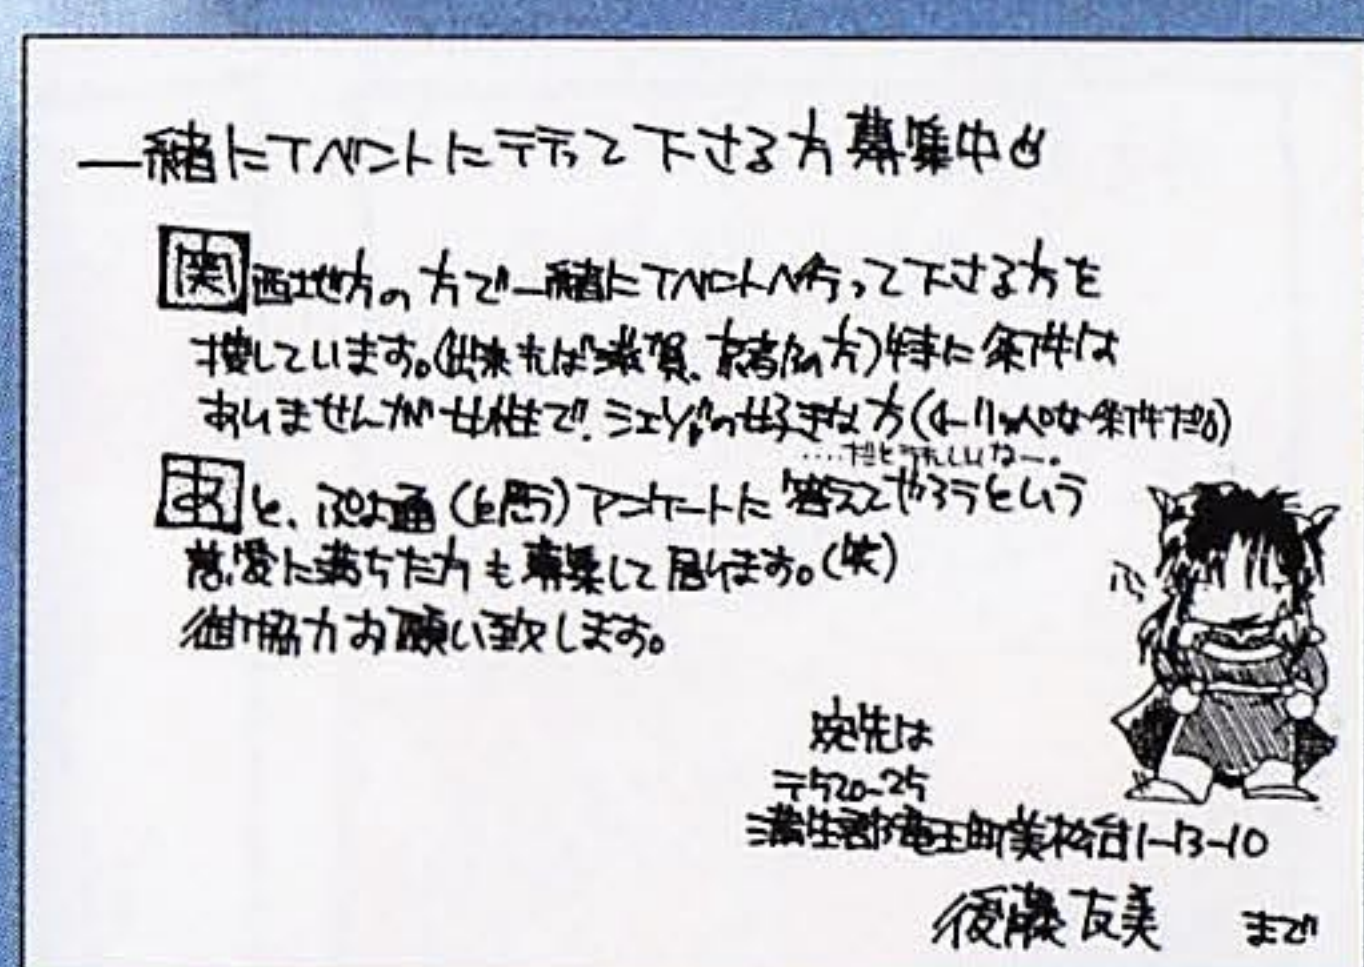 一緒にイベントに行って下さる方募集中
関西地方の方で一緒にイベントへ行って下さる方を
捜しています。(出来れば滋賀、京都の方)特に条件は
ありませんが女性で、シェゾの好きな方(よーりっぱな条件だよ)
....だとうれしいなー。
あと、ぷよ通(と思う)アンケートに答えてやろうという
慈愛に満ちた方も募集して居ります。(笑)
御協力お願い致します。
宛先は
〒520-25
蒲生郡竜王町美松台1-13-10
後藤友美 まで